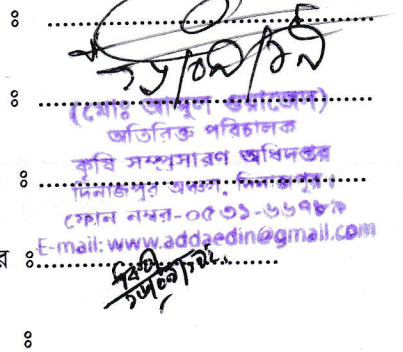 ঃ ....................
ঃ ....................
(মোঃ আব্দুল ওয়াজেদ)
অতিরিক্ত পরিচালক
কৃষি সম্প্রসারণ অধিদপ্তর
ঃ ....................
দিনাজপুর অঞ্চল, দিনাজপুর।
ফোন নম্বর-০৫৩১-৬৬৭৮৯
E-mail: www.addaedin@gmail.com
র ঃ....................
ঃ